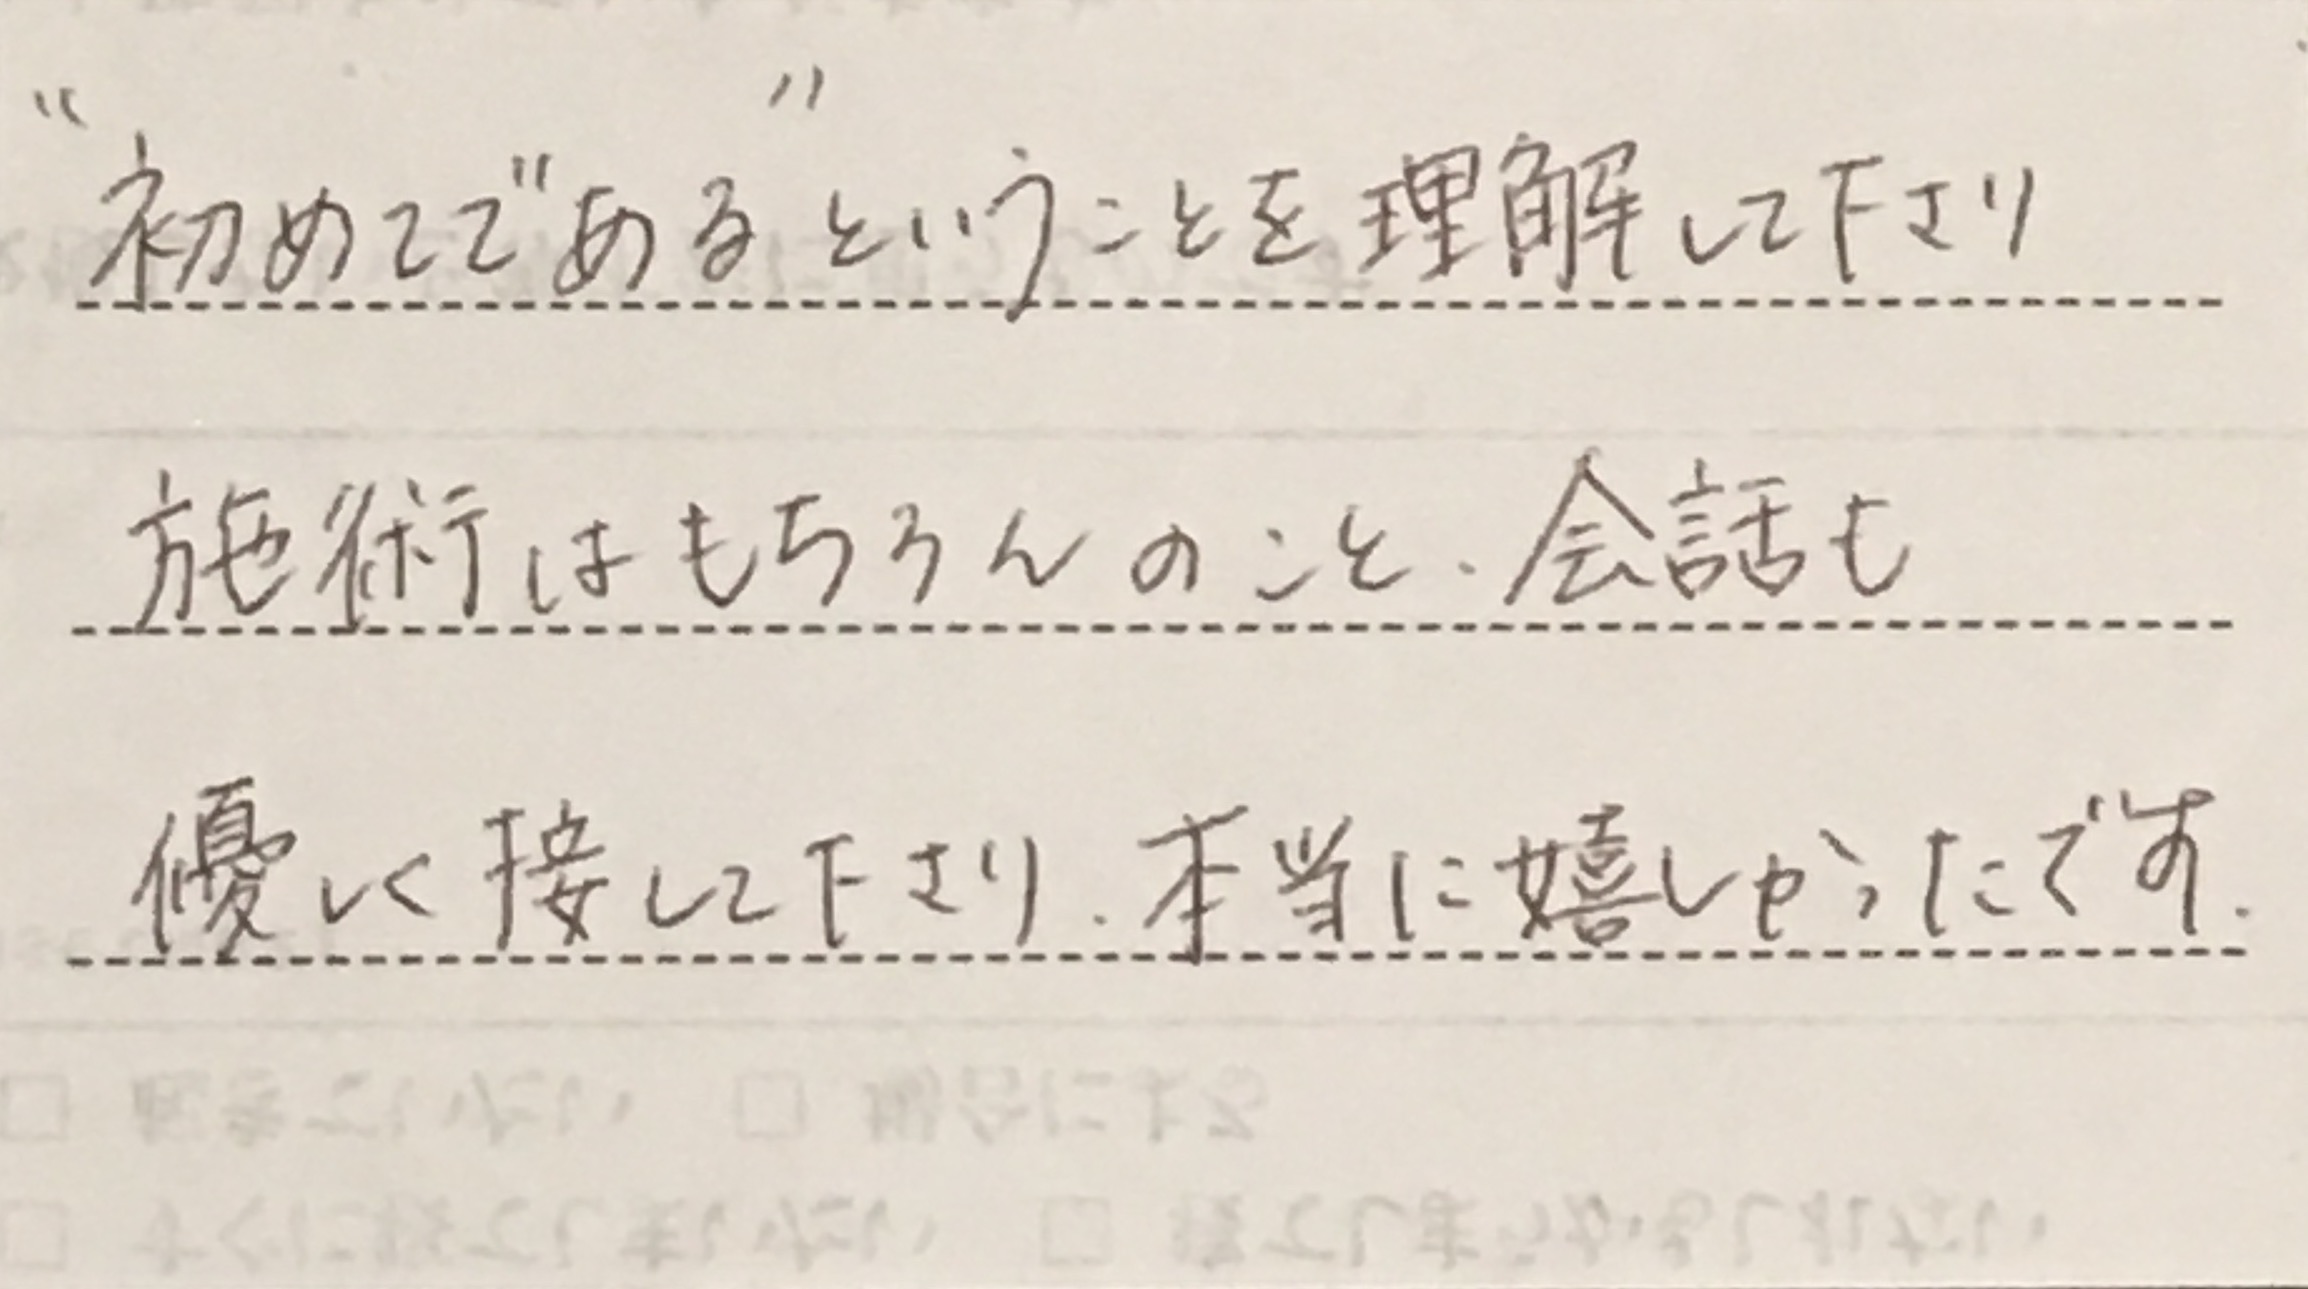 "初めてである"ということを理解して下さり
施術はもちろんのこと、会話も
優しく接して下さり、本当に嬉しかったです。